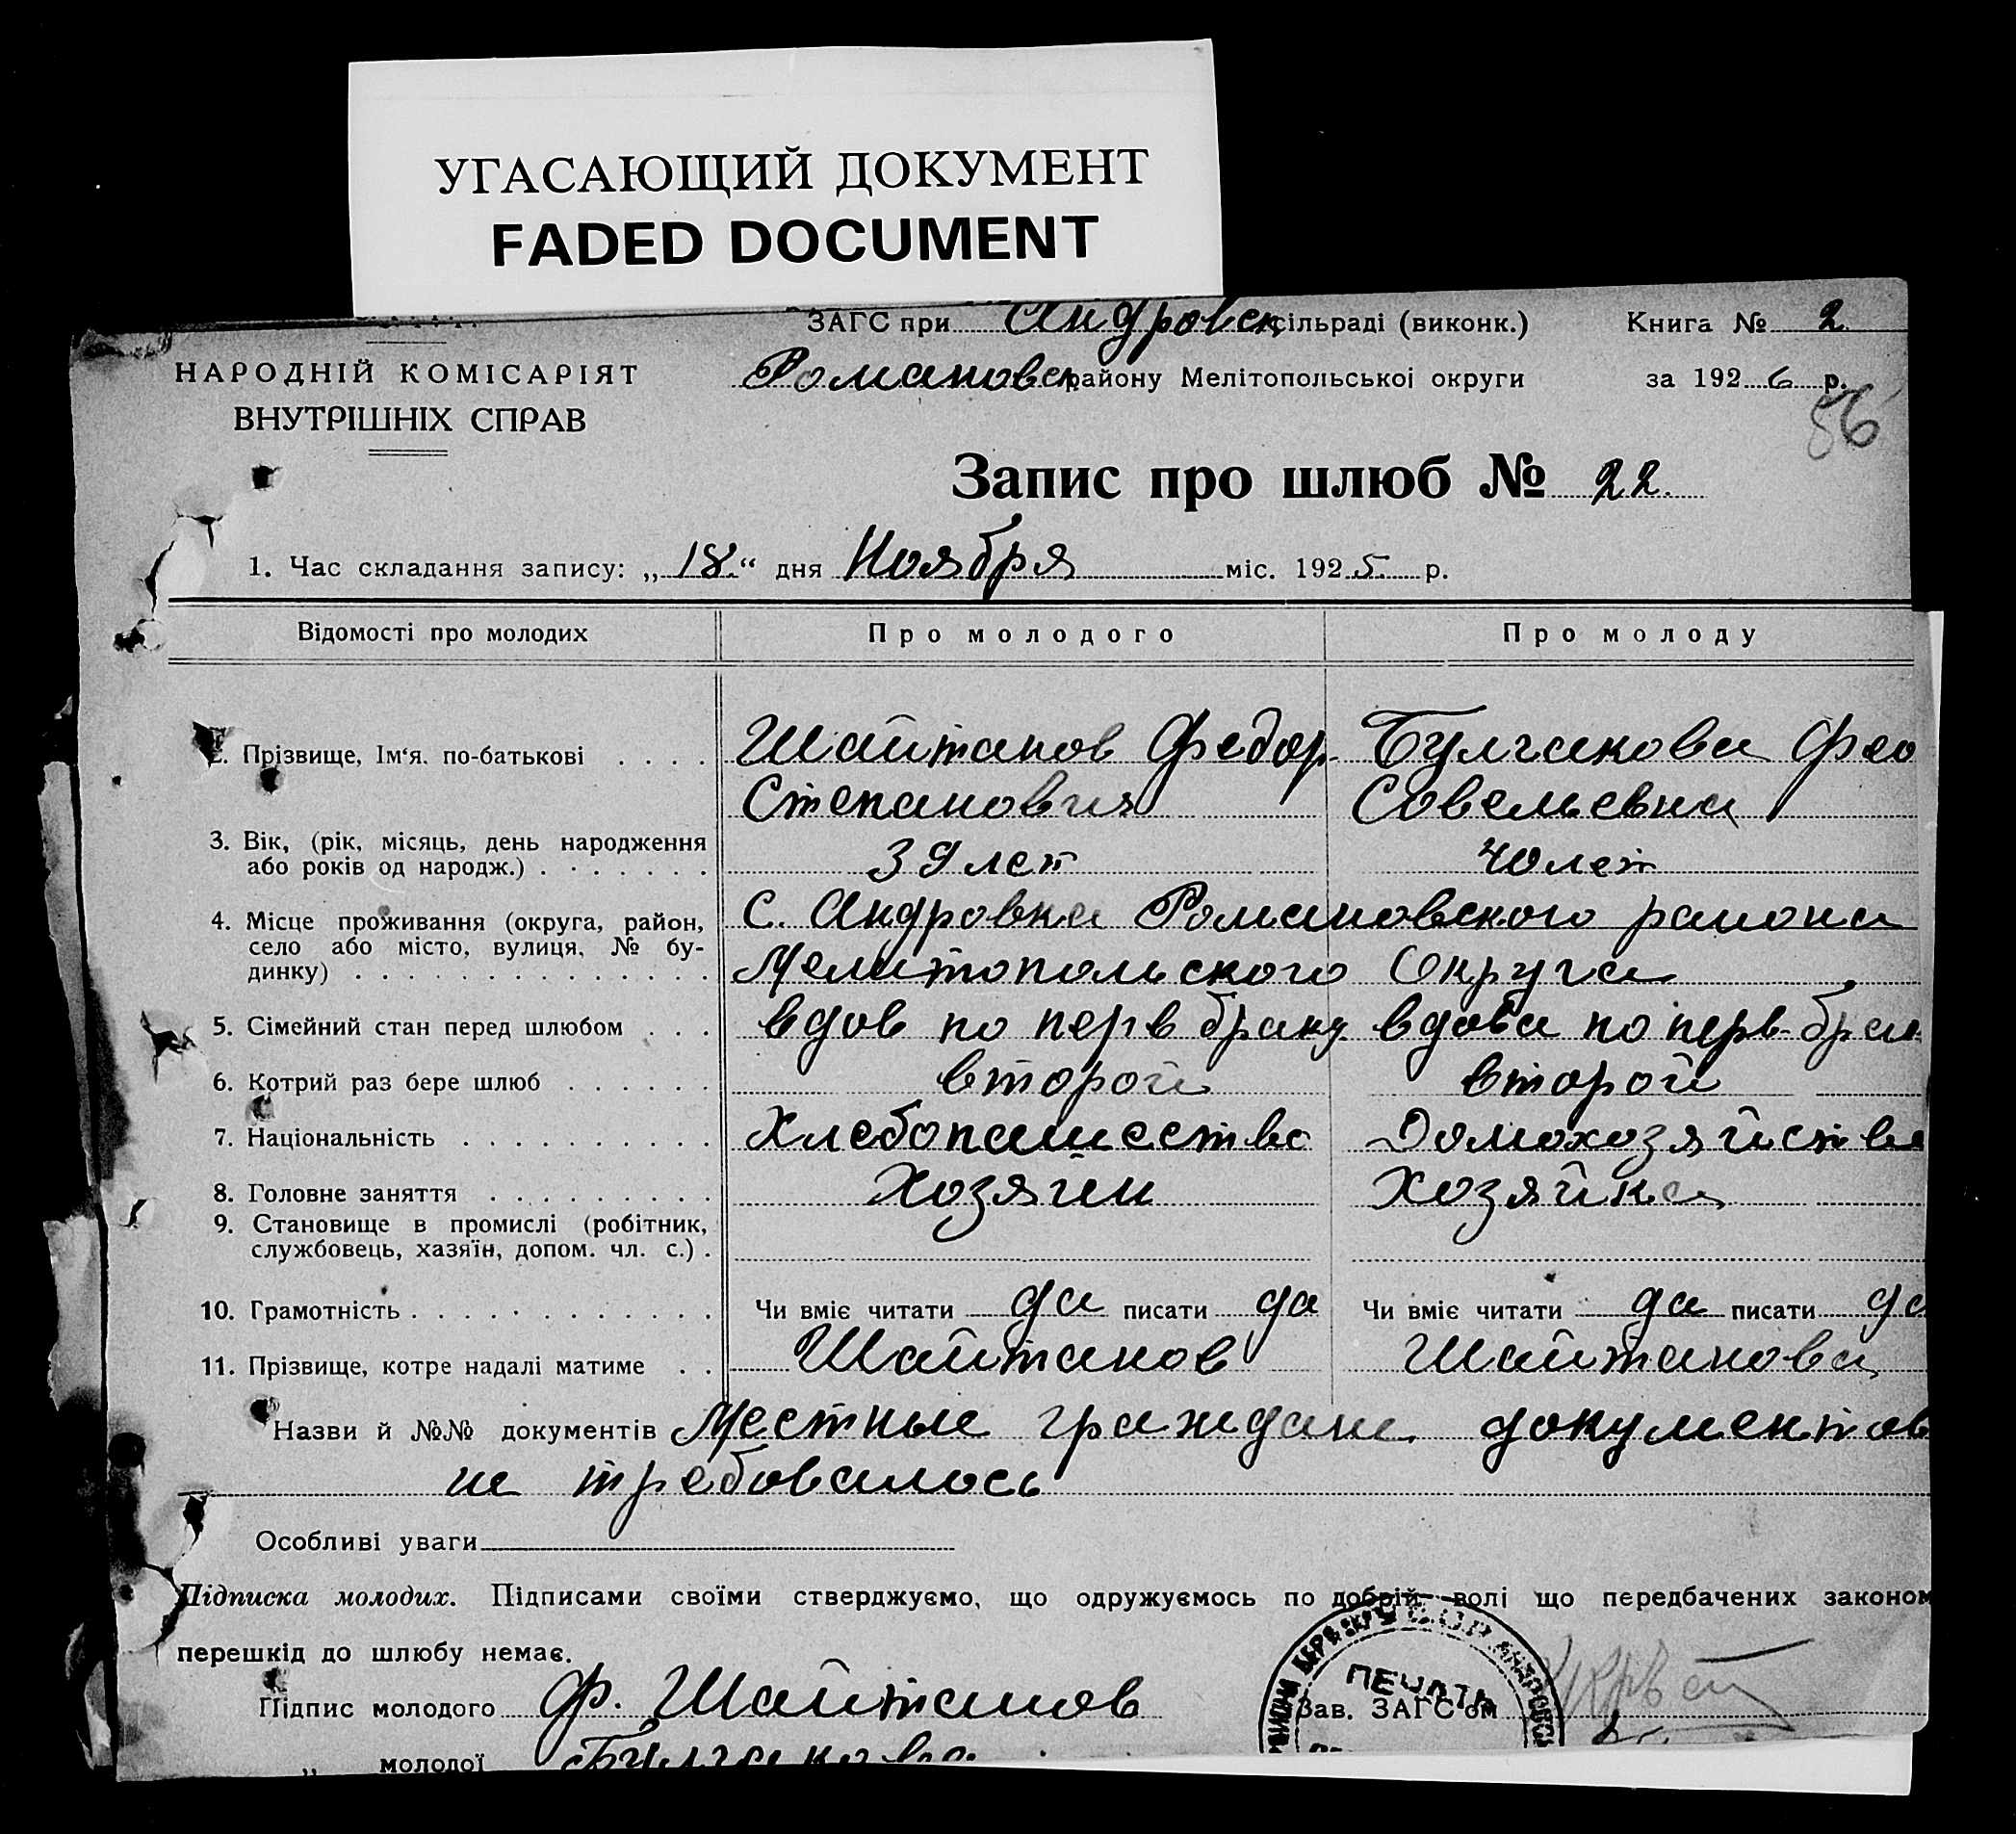 УГАСАЮЩИЙ ДОКУМЕНТ
FADED DOCUMENT
ЗАГС при Андровск сільраді (виконк.) Книга № 2
НАРОДНІЙ КОМІСАРІЯТ Романовск району Мелітопольської округи за 1926 р.
ВНУТРІШНІХ СПРАВ 56
Запис про шлюб № 22.
1. Час складання запису: „18.“ дня Ноября міс. 1925. р.
Відомості про молодих Про молодого Про молоду
2. Прізвище, Ім‘я. по-батькові . . . . Шайтанов Федор Булгакова Фео
Степанович Совельевна
3. Вік, (рік, місяць, день народження
або років од народж.) . . . . . . . 39 лет 40 лет
4. Місце проживання (округа, район, С. Андровка Романовского района
село або місто, вулиця, № бу-
динку) . . . . . . . . . . . . . . Мелитопольского Округа
5. Сімейний стан перед шлюбом . . . вдов по перв браку вдова по перв. брак
6. Котрий раз бере шлюб . . . . . . второй второй
7. Національність . . . . . . . . . . Хлебопашество Домохозяйство
8. Головне заняття . . . . . . . . . Хозяин Хозяйка
9. Становище в промислі (робітник,
службовець, хазяїн, допом. чл. с.) .
10. Грамотність . . . . . . . . . . . . Чи вміє читати да писати да Чи вміє читати да писати да
11. Прізвище, котре надалі матиме . . Шайтанов Шайтанова
Назви й №№ документів Местные граждане документов
не требовалось
Особливі уваги
Підписка молодих. Підписами своїми стверджуємо, що одружуємось по добрій волі що передбачених законом
перешкід до шлюбу немає.
ПЕЧАТЬ
Підпис молодого Ф. Шайтанов Зав. ЗАГС‘ом
„ молодої Булгакова